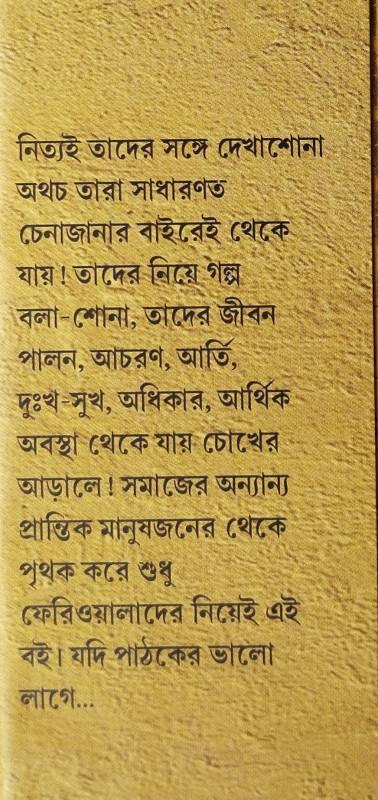 নিত্যই তাদের সঙ্গে দেখাশোনা
অথচ তারা সাধারণত
চেনাজানার বাইরেই থেকে
যায়! তাদের নিয়ে গল্প
বলা-শোনা, তাদের জীবন
পালন, আচরণ, আর্তি,
দুঃখ-সুখ, অধিকার, আর্থিক
অবস্থা থেকে যায় চোখের
আড়ালে! সমাজের অন্যান্য
প্রান্তিক মানুষজনের থেকে
পৃথক করে শুধু
ফেরিওয়ালাদের নিয়েই এই
বই। যদি পাঠকের ভালো
লাগে...